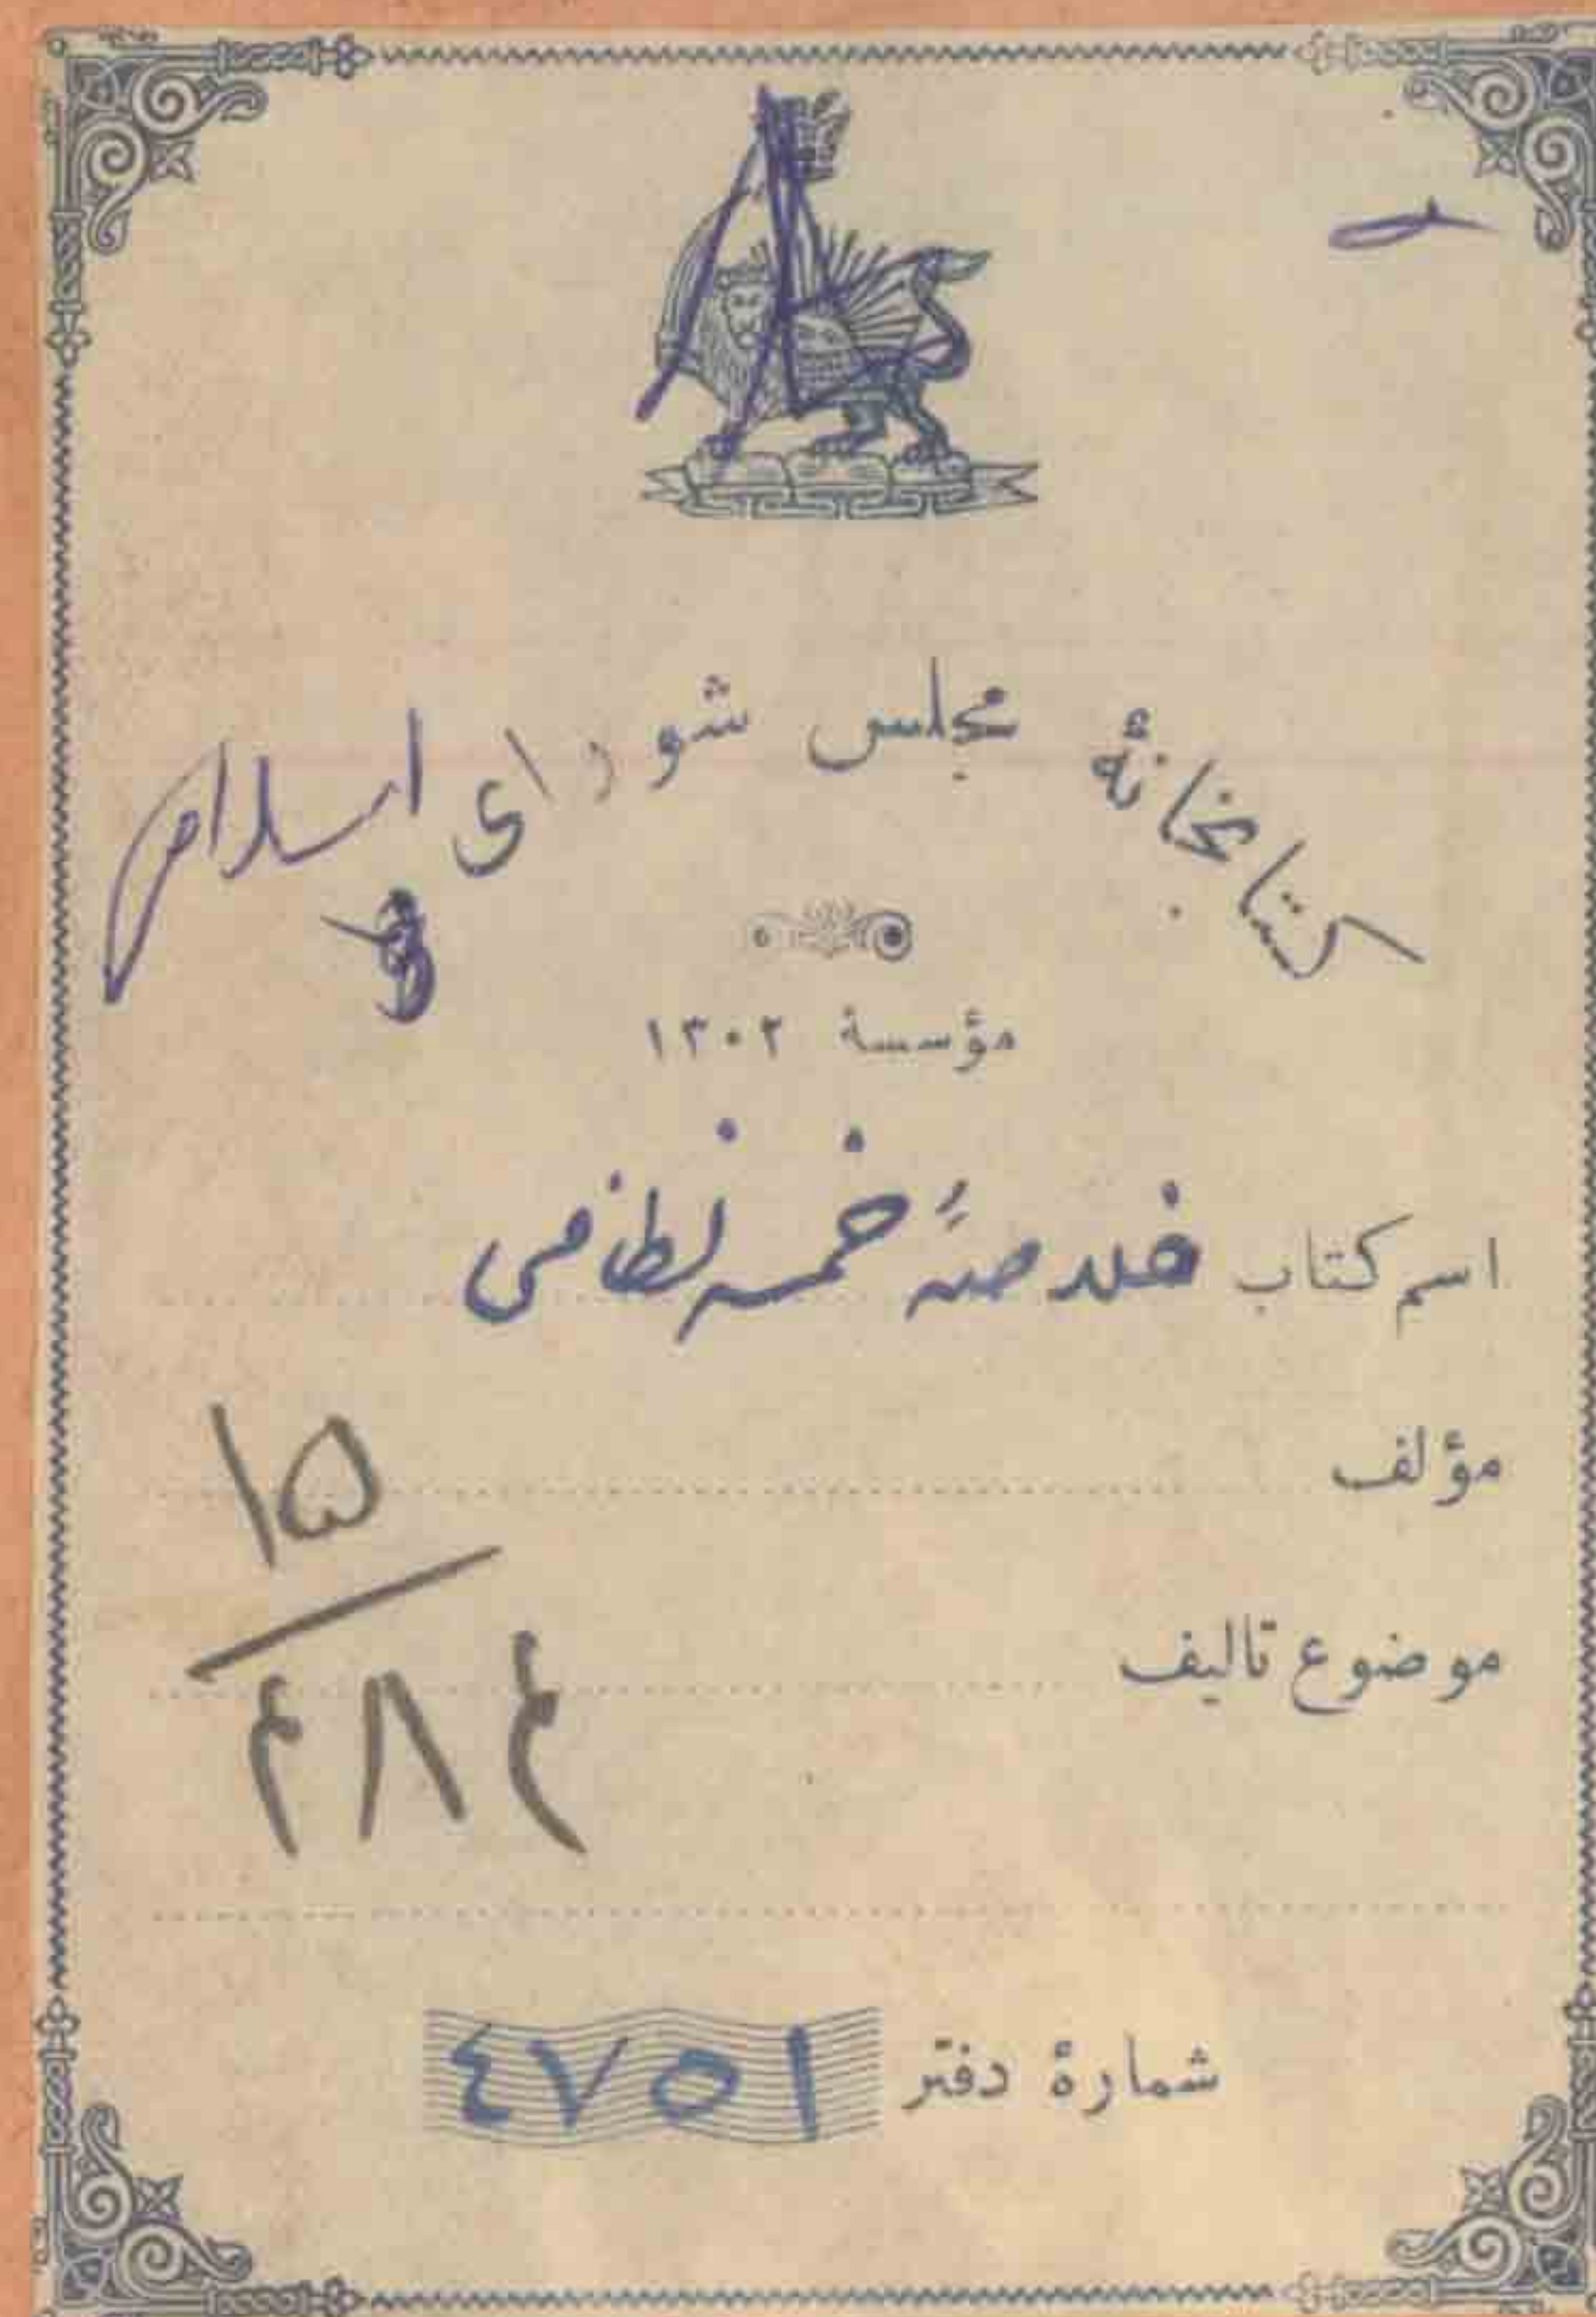 کتابخانهٔ مجلس شورای اسلامی
مؤسسهٔ ۱۳۰۲
اسم کتاب خلاصهٔ خمسه نظامی
مؤلف
۱۵
موضوع تالیف
۴۸۴
شمارهٔ دفتر ٤٧٥١